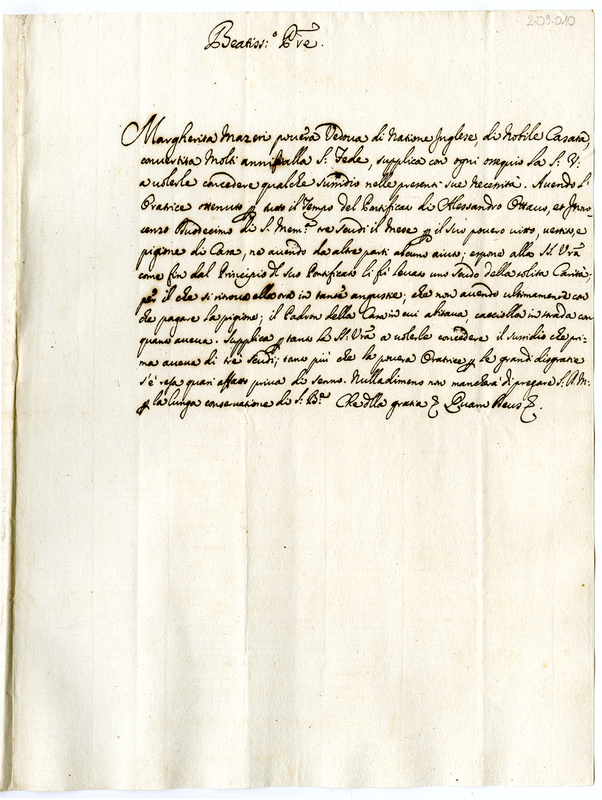 2-09-010
Beatiss:o Pre.
Margherita Mazeri povera Vedova di Natione Inglese, di Nobile Casata,
convertita molti anni alla S: Fede, supplica con ogni ossequio la S: V:
a volerle concedere qualche sussidio nelle presenti sue Necessità. Avendo l'
Oratrice ottenuto tutto il Tempo del Pontificato di Alessandro Ottavo, et Inno-
cenzo Duodecimo di S: Mem: tre scudi il Mese p il suo povero vitto, vestito, e
pigione di Casa, ne avendo da altre parti alcuno aiuto; espone alla SS: Vra
come fin dal Principio di suo Pontificato li fù levato uno Scudo della solita Carità;
per il che si ritrova ella ora in tante angustie; che non avendo ultimamente con
che pagare la pigione; il Padron della Casa in cui abitava, cacciolla in strada con
quanto aveva. Supplica p tanto la SS: Vra a volerle concedere il sussidio che pri-
ma aveva di trè scudi; tanto più che la povera Oratrice p le grandi disgratie
s'è resa quasi affatto priva di senno. Nulladimeno non mancherà di pregare S: D: M:
p la lunga conservatione di S: B: Che della gratia &c Quam Deus &c.